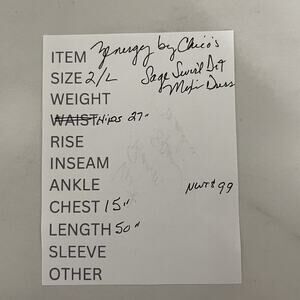 ITEM Zenergy by Chico's
SIZE 2/L Sage Swirl Dot
WEIGHT Maxi Dress
WAIST Hips 27"
RISE
INSEAM
ANKLE NWT $99
CHEST 15"
LENGTH 50"
SLEEVE
OTHER